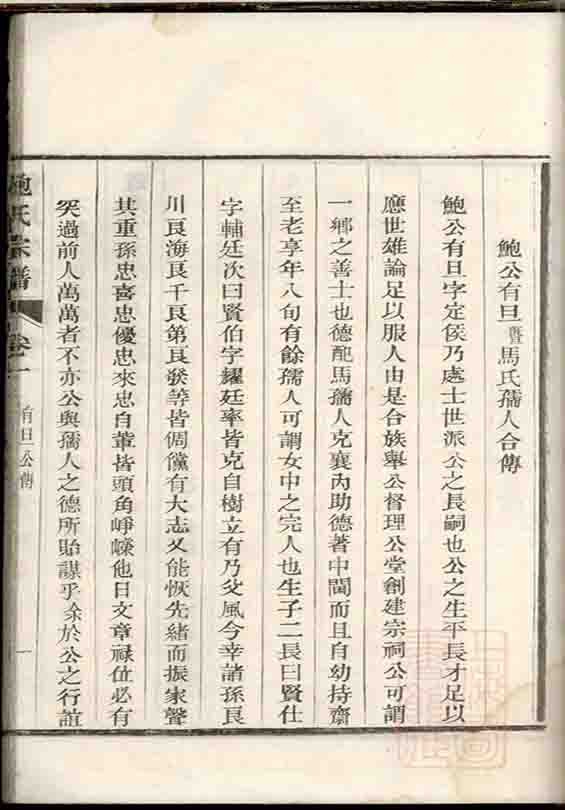 鮑公有旦暨馬氏孺人合傳
鮑公有旦字定侯乃處士世派公之長嗣也公之生平長才足以
應世雄論足以服人由是合族舉公督理公堂創建宗祠公可謂
一鄉之善士也德配馬孺人克襄內助德著中閫而且自幼持齋
至老享年八旬有餘孺人可謂女中之完人也生子二長曰賢仕
字輔廷次曰賢伯字耀廷率皆克自樹立有乃父風今幸諸孫良
川良海良千良第良發等皆倜儻有大志又能恢先緒而振家聲
其重孫忠喜忠優忠來忠自輩皆頭角崢嶸他日文章祿位必有
突過前人萬萬者不亦公與孺人之德所貽謀乎余於公之行誼
鮑氏宗譜
卷一
有旦公傳
一